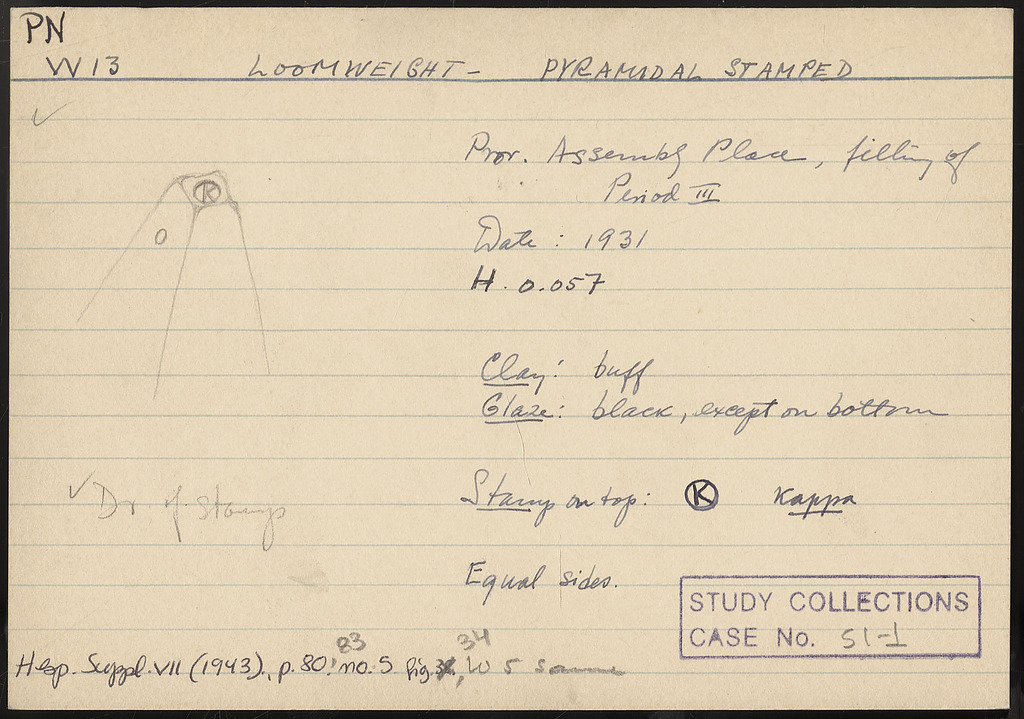 PN
W13 LOOMWEIGHT - PYRAMIDAL STAMPED
Prov. Assembly Place, filling of
Period III
K
Date : 1931
H. 0.057
Clay: buff
Glaze: black, except on bottom
✓ Dr. of stamp
Stamp on top: Ⓚ Kappa
Equal sides.
STUDY COLLECTIONS
CASE No. S1-1
83 34
Hesp. Suppl. VII (1943), p. 80, no. 5. fig. , W 5 same